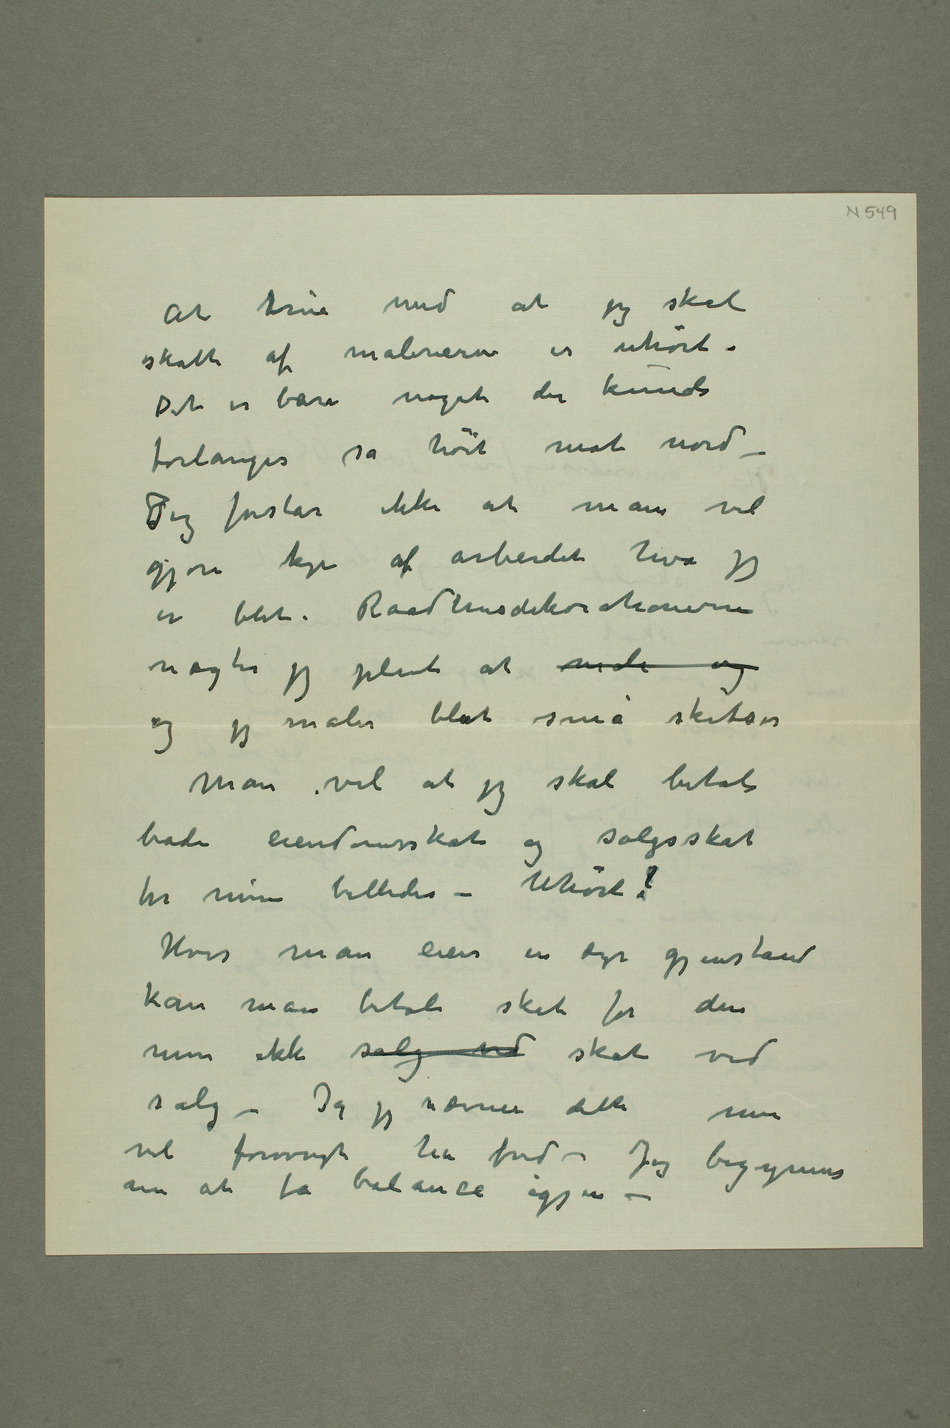 N 549
At true med at jeg skal
skatte af malerierne er uhørt.
Det er bare noget der kunde
forlanges så høit mot nord –
Jeg forstår ikke at man vil
gjøre kys af arbeidet hva jeg
er blet. Raadhusdekorationerne
nægter jeg plent at male og
og jeg maler blot små skitser
Man vil at jeg skal betale
både eiendomsskat og salgsskat
for mine billeder – Uhørt!
Hvis man eier en dyr gjenstand
kan man betale skat for den
men ikke salg ved skat ved
salg – Ja jeg nævner dette men
vil forøvrigt ha fred – Jeg begynner
nu at få balance igjen –